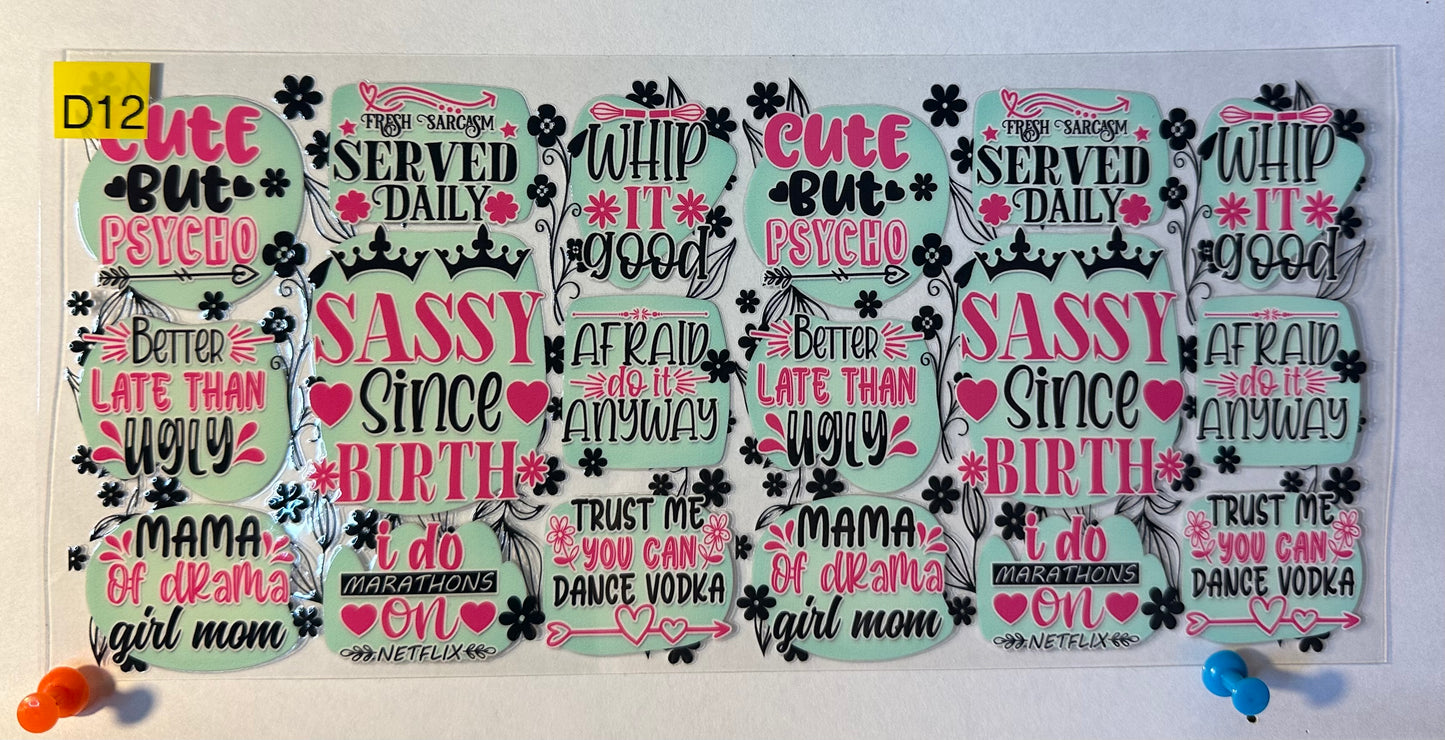 D12
CUTE
BUT
PSYCHO
FRESH SARCASM
SERVED
DAILY
WHIP
IT
good
CUTE
BUT
PSYCHO
FRESH SARCASM
SERVED
DAILY
WHIP
IT
good
BETTER
LATE THAN
UGLY
SASSY
Since
BIRTH
AFRAID
do it
ANYWAY
BETTER
LATE THAN
UGLY
SASSY
Since
BIRTH
AFRAID
do it
ANYWAY
MAMA
Of dRama
girl mom
i do
MARATHONS
on
NETFLIX
TRUST ME
YOU CAN
DANCE VODKA
MAMA
Of dRama
girl mom
i do
MARATHONS
on
NETFLIX
TRUST ME
YOU CAN
DANCE VODKA